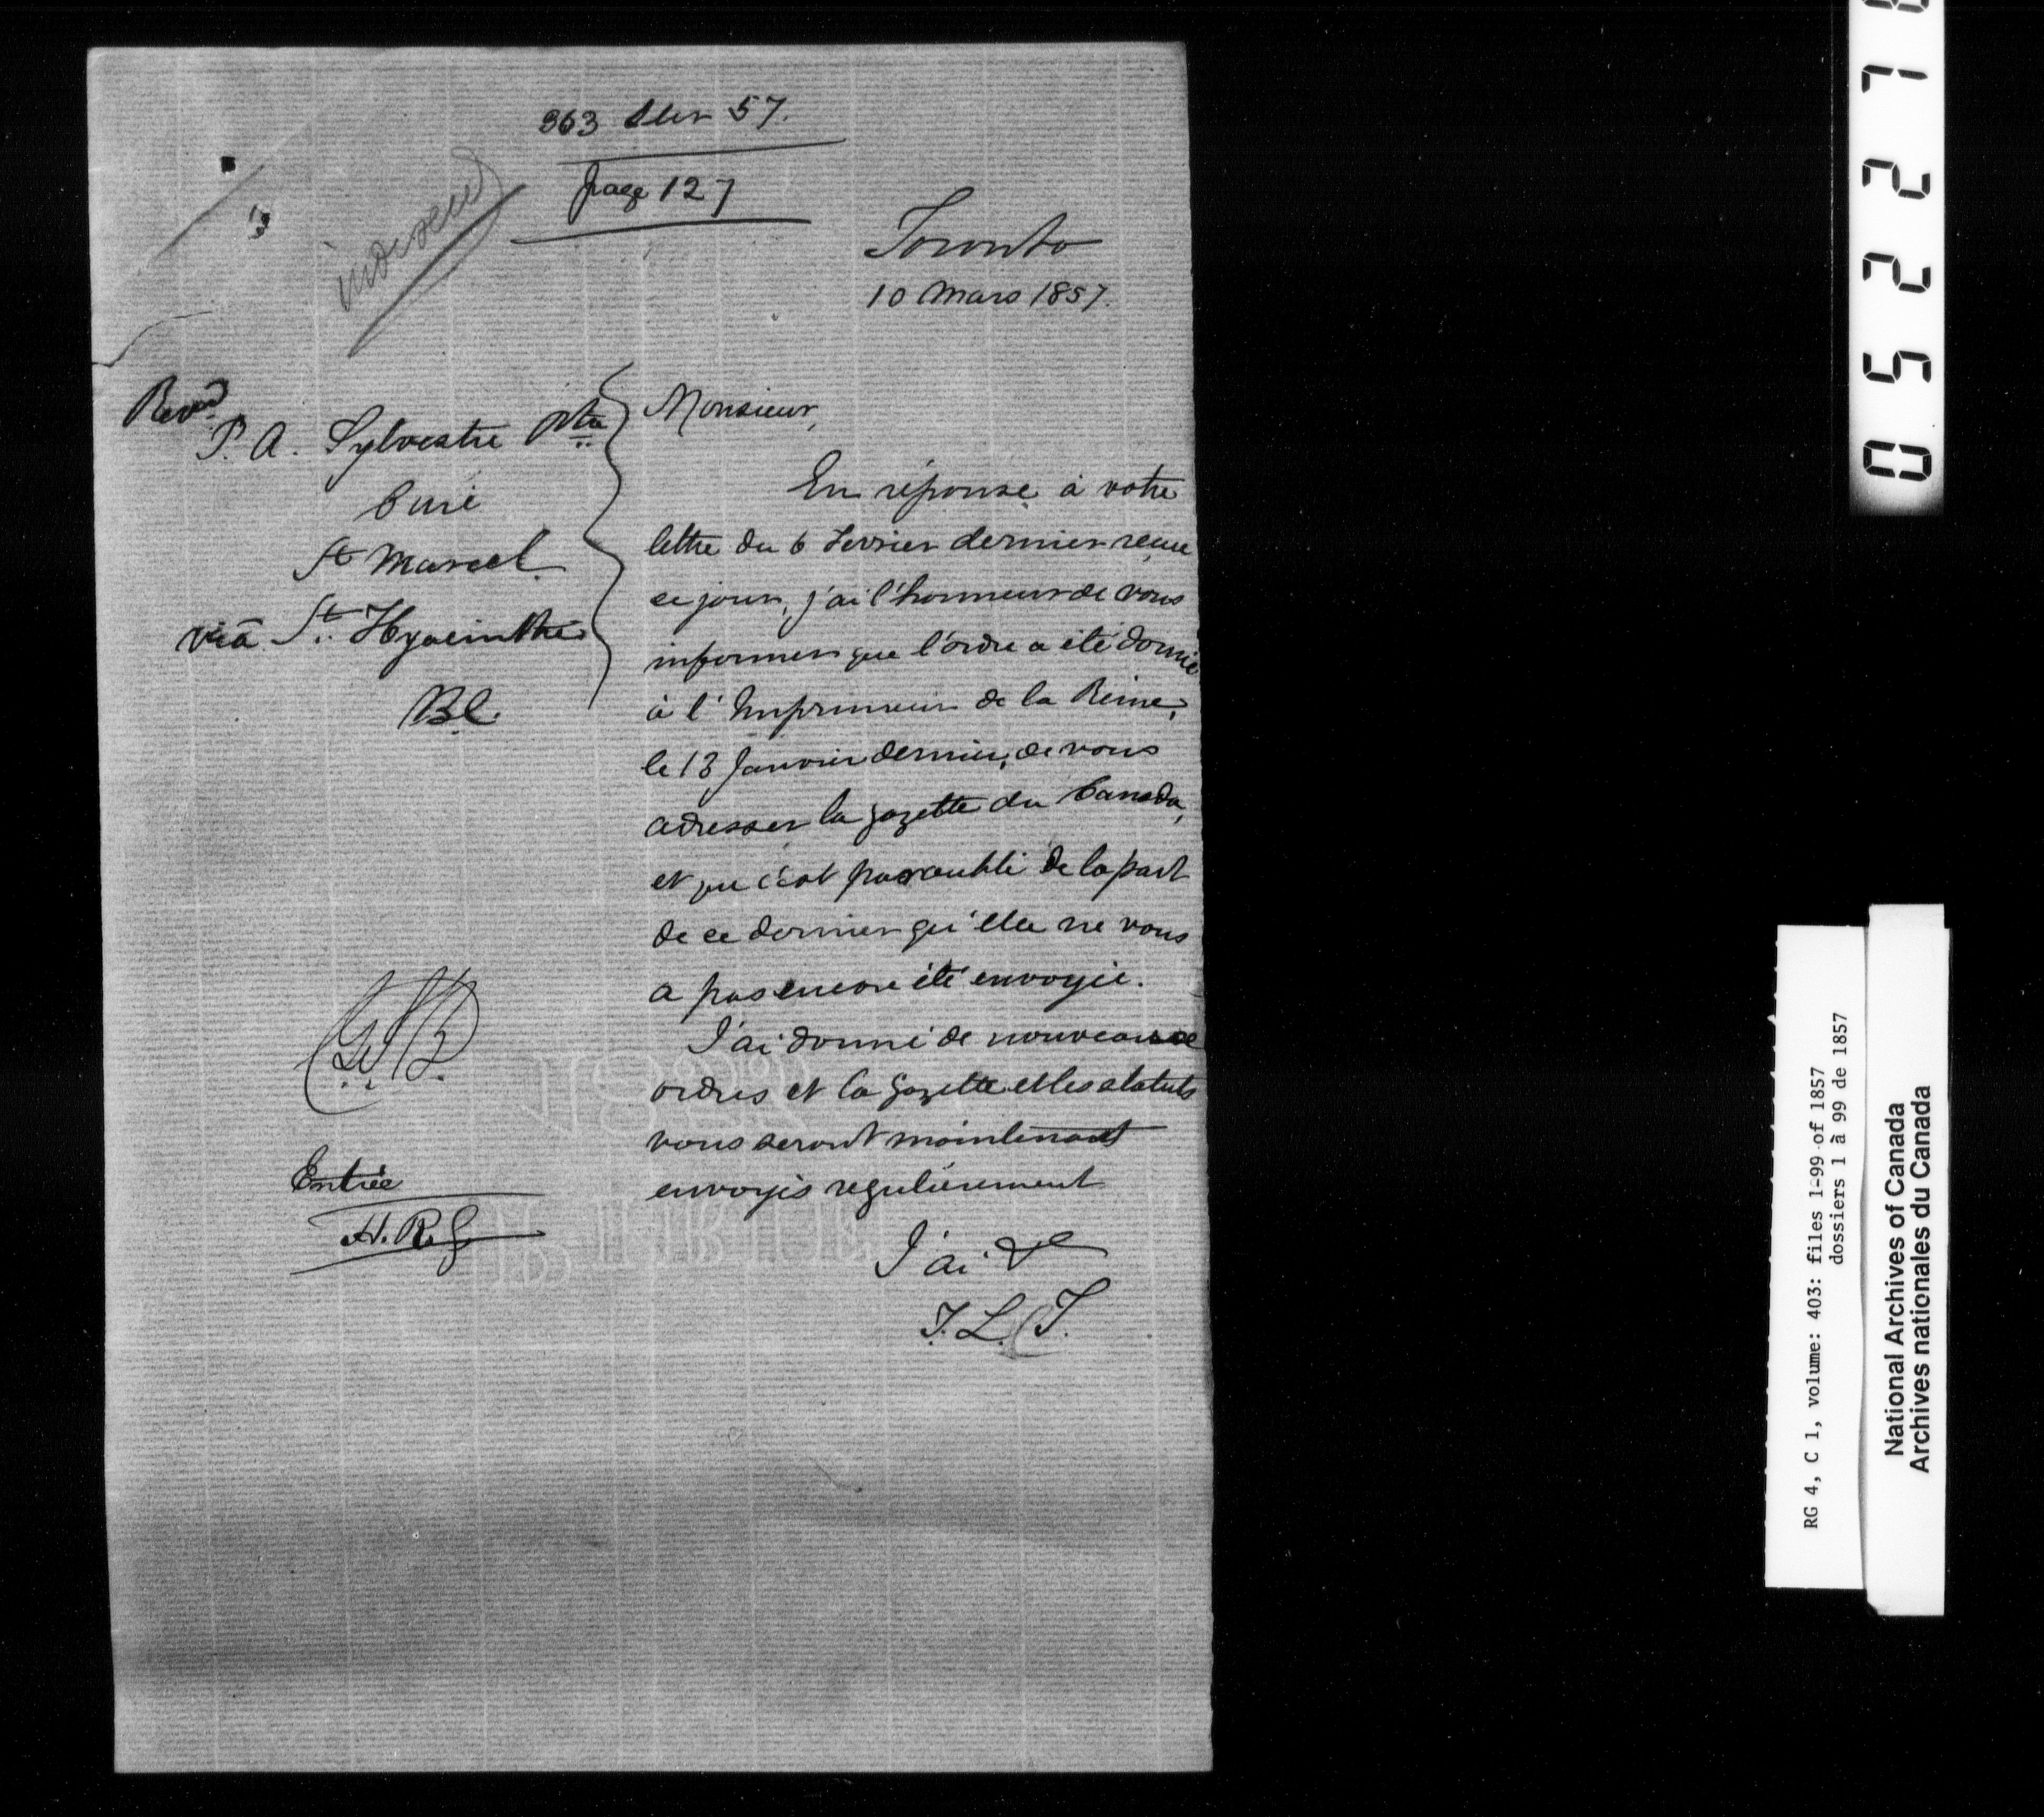 363 57.
page 127
Toronto
10 Mars 1857.
Revd
P. A. Sylvestre Ptre
Curé
St Marcel
viâ St. Hyacinthe
Monsieur,
En réponse à votre
lettre du 6 Fevrier dernier reçue
ce jour, j'ai l'honneur de vous
informer que l'ordre a été donné
à l'Imprimeur de la Reine,
le 13 Janvier dernier, de vous
adresser la gazette du Canada,
et que c'est par oubli de la part
de ce dernier qu'elle ne vous
a pas encore été envoyée.
J'ai donné de nouveaux
ordres et la Gazette et les statuts
vous seront maintenant
envoyés regulièrement
J'ai &c
T. L. T.
Entrée
0 5 2 2 7
RG 4, C 1, volume: 403: files 1-99 of 1857
dossiers 1 à 99 de 1857
National Archives of Canada
Archives nationales du Canada